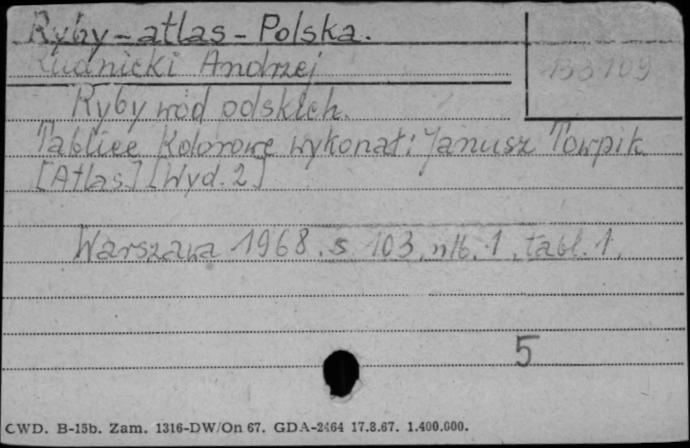 Ryby - atlas - Polska.
Rudnicki Andrzej
133109
Ryby wód polskich.
Tablice Kolorowe wykonał: Janusz Towpik
[Atlas] [Wyd. 2]
Warszawa 1968. s 103, nlb. 1, tabl. 1.
5
CWD. B-15b. Zam. 1316-DW/On 67. GDA-2464 17.8.67. 1.400.000.